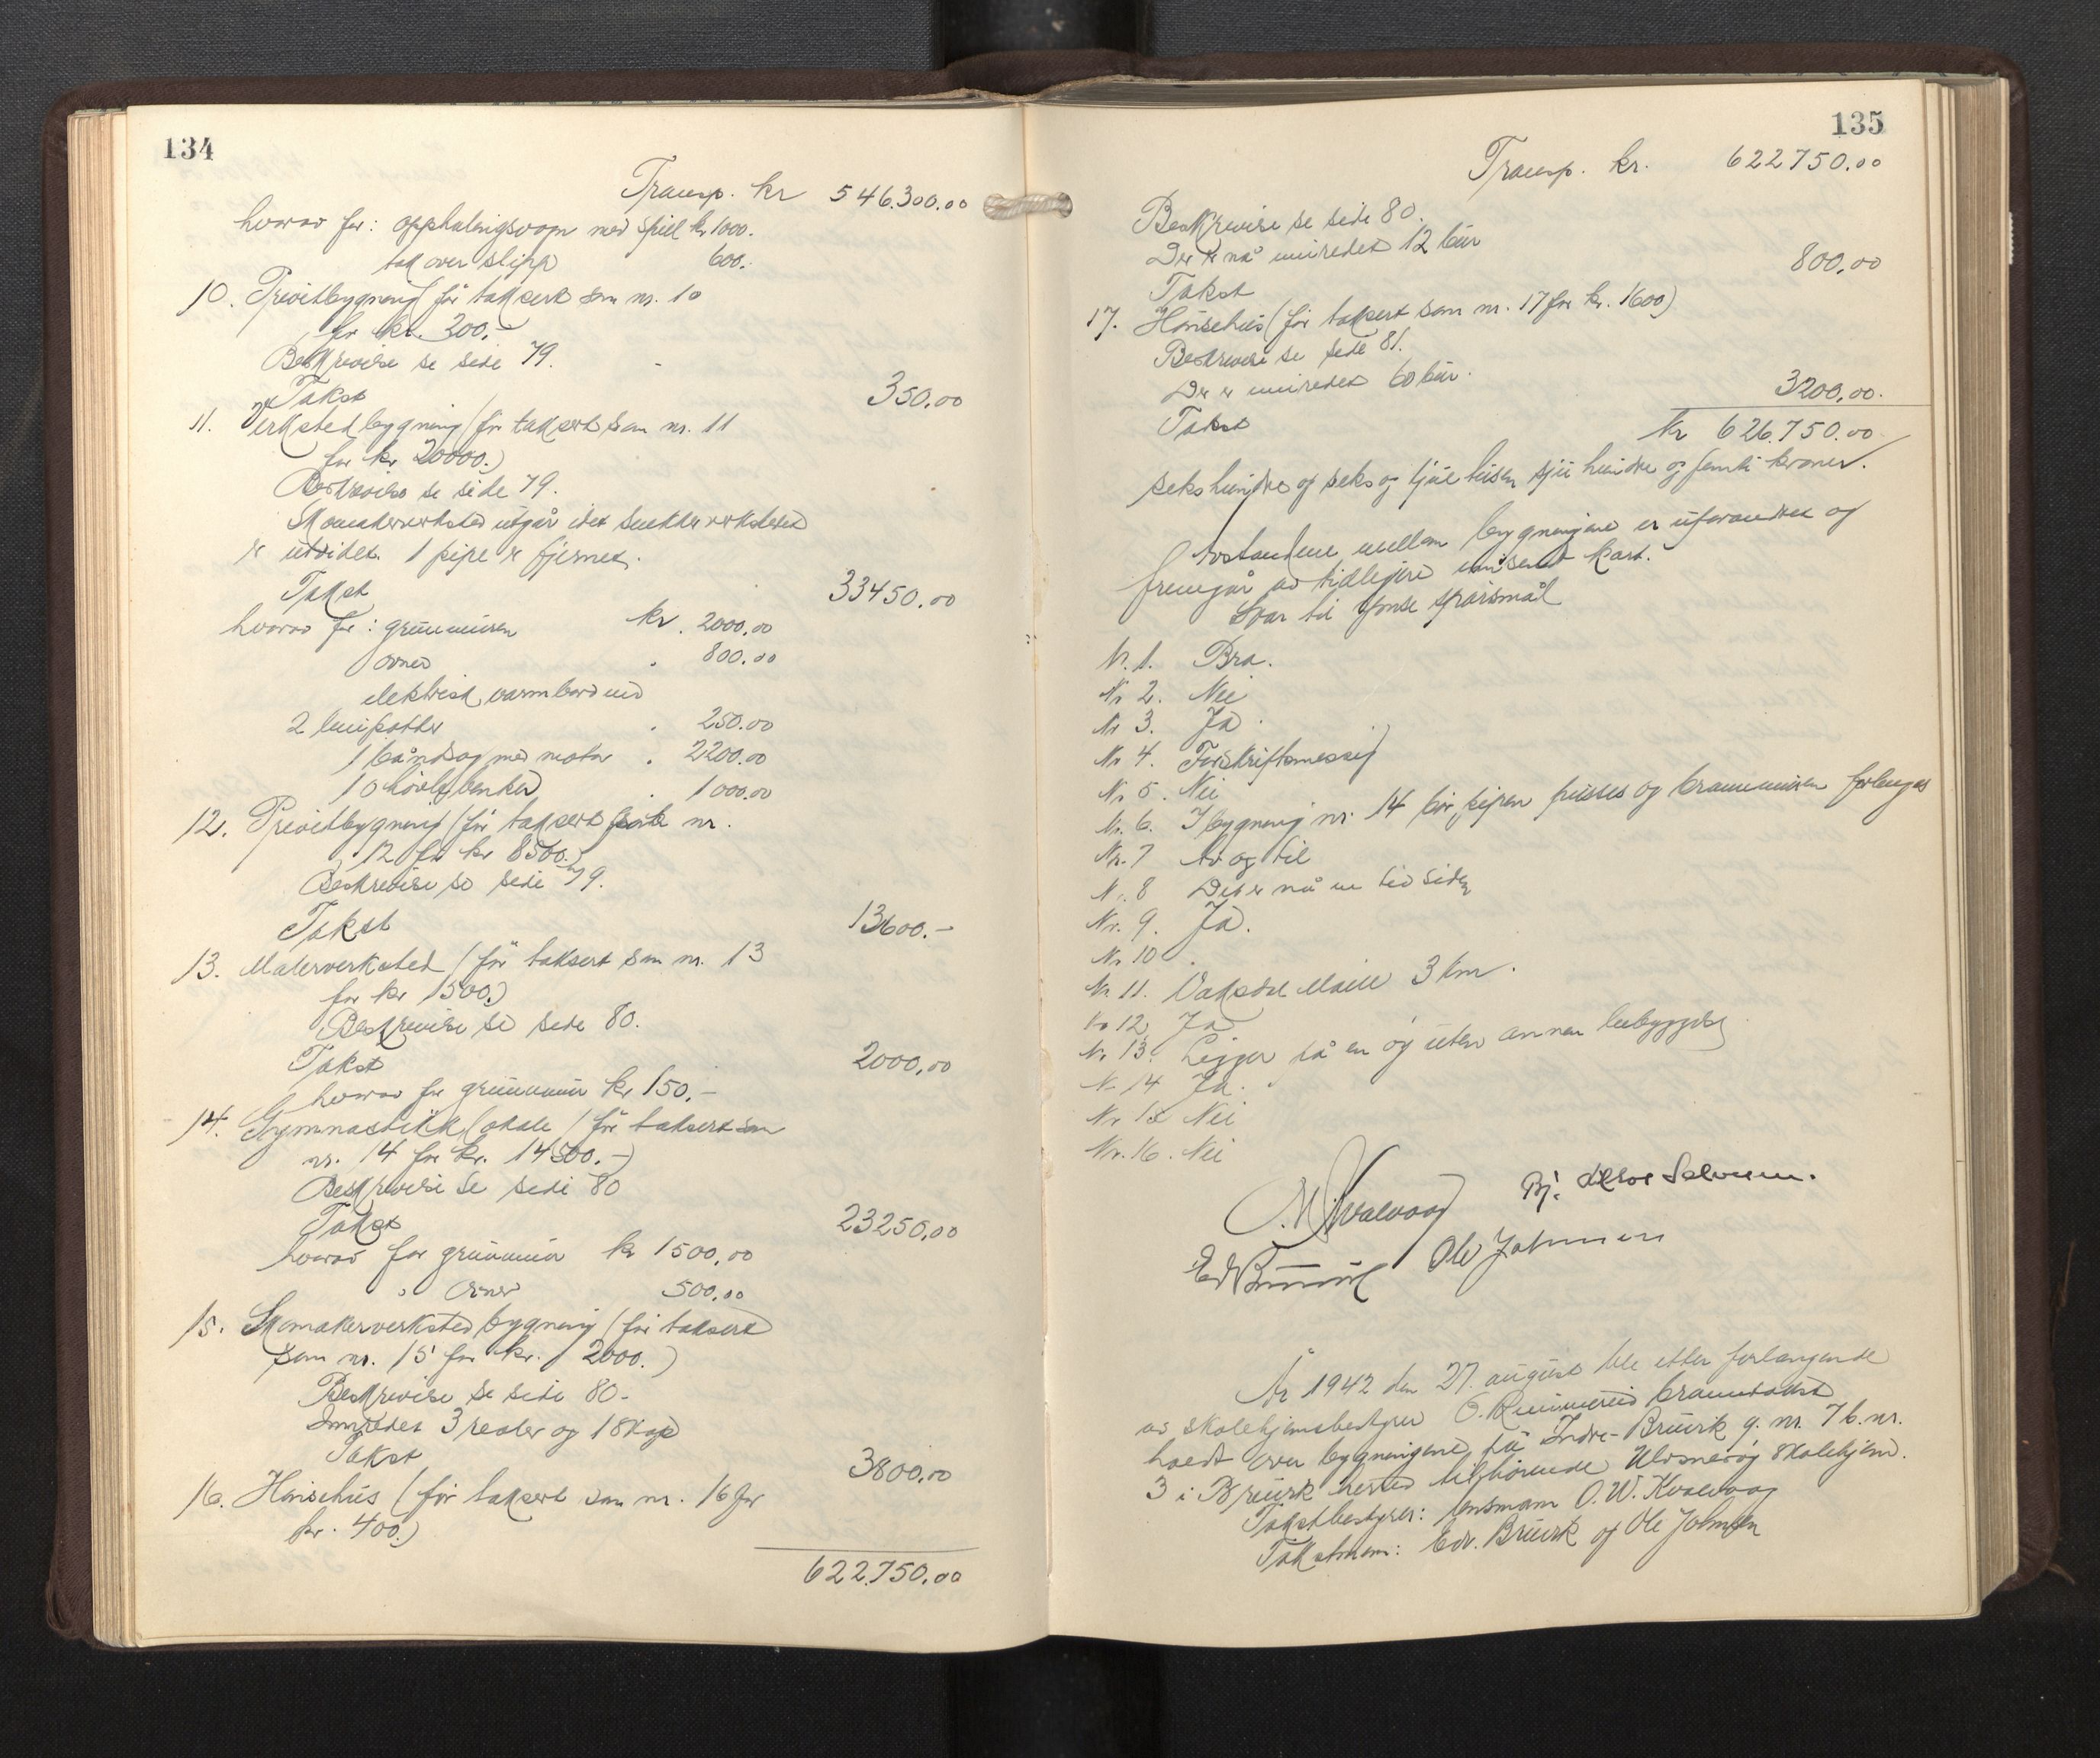 134
Transp. kr 546.300.00
hvorav for: opphalingsvogn med spill kr 1000.
tak over slipp 600.-
10. Privitbygning (før taksert som nr. 10
for kr. 200.-
Beskrivelse se side 79.
Takst 350.00
11. Verkstedbygning (før taksert som nr. 11
for kr 20000.)
Beskrivelse se side 79.
Skomakerverksted utgår idet snekkerverkstedet
er utvidet. 1 pipe er fjernet.
Takst 33450.00
hvorav for: grunnmuren kr. 2000.00
ovner 800.00
elektrisk varmbord med
2 limpotter 250.00
1 båndsag med motor 2200.00
10 høvelbenker 1000.00
12. Privitbygning (før taksert som nr.
12 for kr 8500.-)
Beskrivelse se side 79.
Takst 13600.-
13. Malerverksted (før taksert som nr. 13
for kr 1500.)
Beskrivelse se side 80.
Takst 2000.00
hvorav for grunnmur kr 150.-
14. Gymnastikklokale (før taksert som
nr. 14 for kr. 14500.-)
Beskrivelse se side 80
Takst 23250.00
hvorav for grunnmur kr 1500.00
" ovner 500.00
15. Skomakerverksted bygning (før taksert
som nr. 15 for kr. 2000.)
Beskrivelse se side 80.
Innredet 3 reoler og 1 skap
Takst 3800.00
16. Hønsehus (før taksert som nr. 16 for
kr. 400.)
622.750.00
135
Transp. kr. 622750.00
Beskrivelse se side 80.
Der er nå innredet 12 bur
Takst 800.00
17. Hønsehus (før taksert som nr. 17 for kr. 1600)
Beskrivelse se side 81.
Der er innredet 60 bur.
Takst 3200.00.
Kr 626.750.00
sekshundre og seks og tjue tusen sju hundre og femti kroner.
Avstandene mellem bygningene er uforandret og
fremgår av tidligere innsendt kart.
Svar til spørsmål
Nr. 1. Bra.
Nr 2. Nei
Nr 3. Ja.
Nr 4. Forskriftsmessig
Nr 5. Nei
Nr. 6. I bygning nr. 14 bør pipen pusses og brannmuren forlenges
Nr. 7 Av og til
Nr. 8 Det er nå en tid siden
Nr. 9. Ja.
Nr. 10.
Nr 11. Vaksdal Mølle 3 km.
Nr 12. Ja
Nr. 13. Ligger på en øy uten annen bebyggelse
Nr 14 Ja.
Nr. 15 Nei
Nr. 16. Nei
O.W. Kvalvaag Bj.
Edv Bruvik Ole Johnsen
År 1942 den 27. august ble etter forlangende
av skolehjemsbestyrer O. Rimmereid branntakst
holdt over bygningene på Indre-Bruvik g. nr. 7 b. nr.
3 i Bruvik herred tilhørende Ulvsnesøy skolehjem.
Takstbestyrer: lensmann O. W. Kvalvaag
Takstmenn: Edv. Bruvik og Ole Johnsen